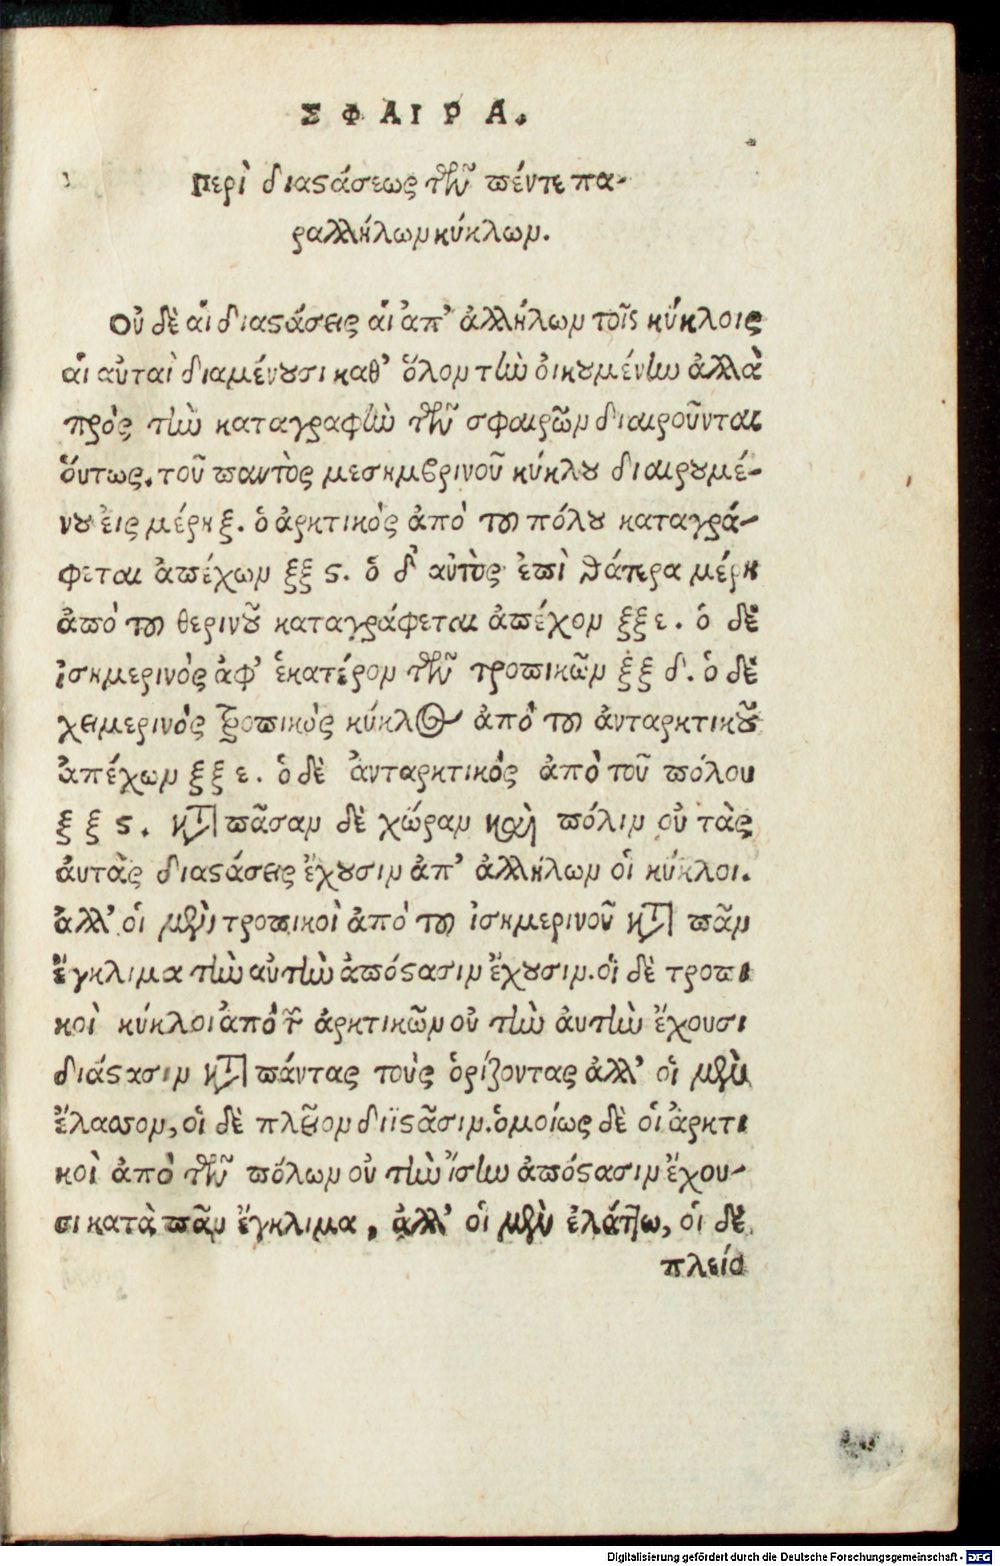 ΣΦΑΙΡΑ.
Περὶ διαϛάσεως τῶν πέντε πα-
ραλλήλων κύκλων.
Οὐ δὲ αἱ διαϛάσεις αἱ ἀπ' ἀλλήλων τοῖς κύκλοις
αἱ αὐταὶ διαμένουσι καθ' ὅλον τὴν ὀικουμένην ἀλλὰ
πρὸς τὴν καταγραφὴν τῶν σφαιρῶν διαιροῦνται
ὅυτως. τοῦ παντὸς μεσημβρινοῦ κύκλου διαιρουμέ-
νου ἐις μέρη ξ. ὁ ἀρκτικὸς ἀπὸ του πόλου καταγρά-
φεται ἀπέχων ξξ ϛ. ὁ δ' αὐτὸς ἐπὶ θάτερα μέρη
ἀπὸ του θερινοῦ καταγράφεται ἀπέχον ξξ ε. ὁ δὲ
ἰσημερινὸς ἀφ' ἑκατέρον τῶν τροπικῶν ξξ δ. ὁ δὲ
χειμερινὸς τροπικὸς κύκλος ἀπὸ του ἀνταρκτικοῦ
ἀπέχων ξξ ε. ὁ δὲ ἀνταρκτικὸς ἀπὸ τοῦ πόλου
ξ ξ ϛ. κατὰ πᾶσαν δὲ χώραν καὶ πόλιν οὐ τὰς
ἀυτὰς διαϛάσεις ἔχουσιν ἀπ' ἀλλήλων οἱ κύκλοι.
ἀλλ' οἱ μὲν τροπικοὶ ἀπὸ του ἰσημερινοῦ κατὰ πᾶν
ἔγκλιμα τὴν αὐτὴν ἀπόϛασιν ἔχουσιν. οἱ δὲ τροπι
κοὶ κύκλοι ἀπὸ τῶν ἀρκτικῶν οὐ τὴν ἀυτὴν ἔχουσι
διάϛασιν κατὰ πάντας τοὺς ὁρίζοντας ἀλλ' οἱ μὲν
ἔλασσον, οἱ δὲ πλεῖον διϊϛᾶσιν. ὁμοίως δὲ οἱ ἀρκτι
κοὶ ἀπὸ τῶν πόλων οὐ τὴν ἴσην ἀπόϛασιν ἔχου-
σι κατὰ πᾶν ἔγκλιμα, ἀλλ' οἱ μὲν ἐλάττω, οἱ δὲ
πλείο
Digitalisierung gefördert durch die Deutsche Forschungsgemeinschaft - DFG